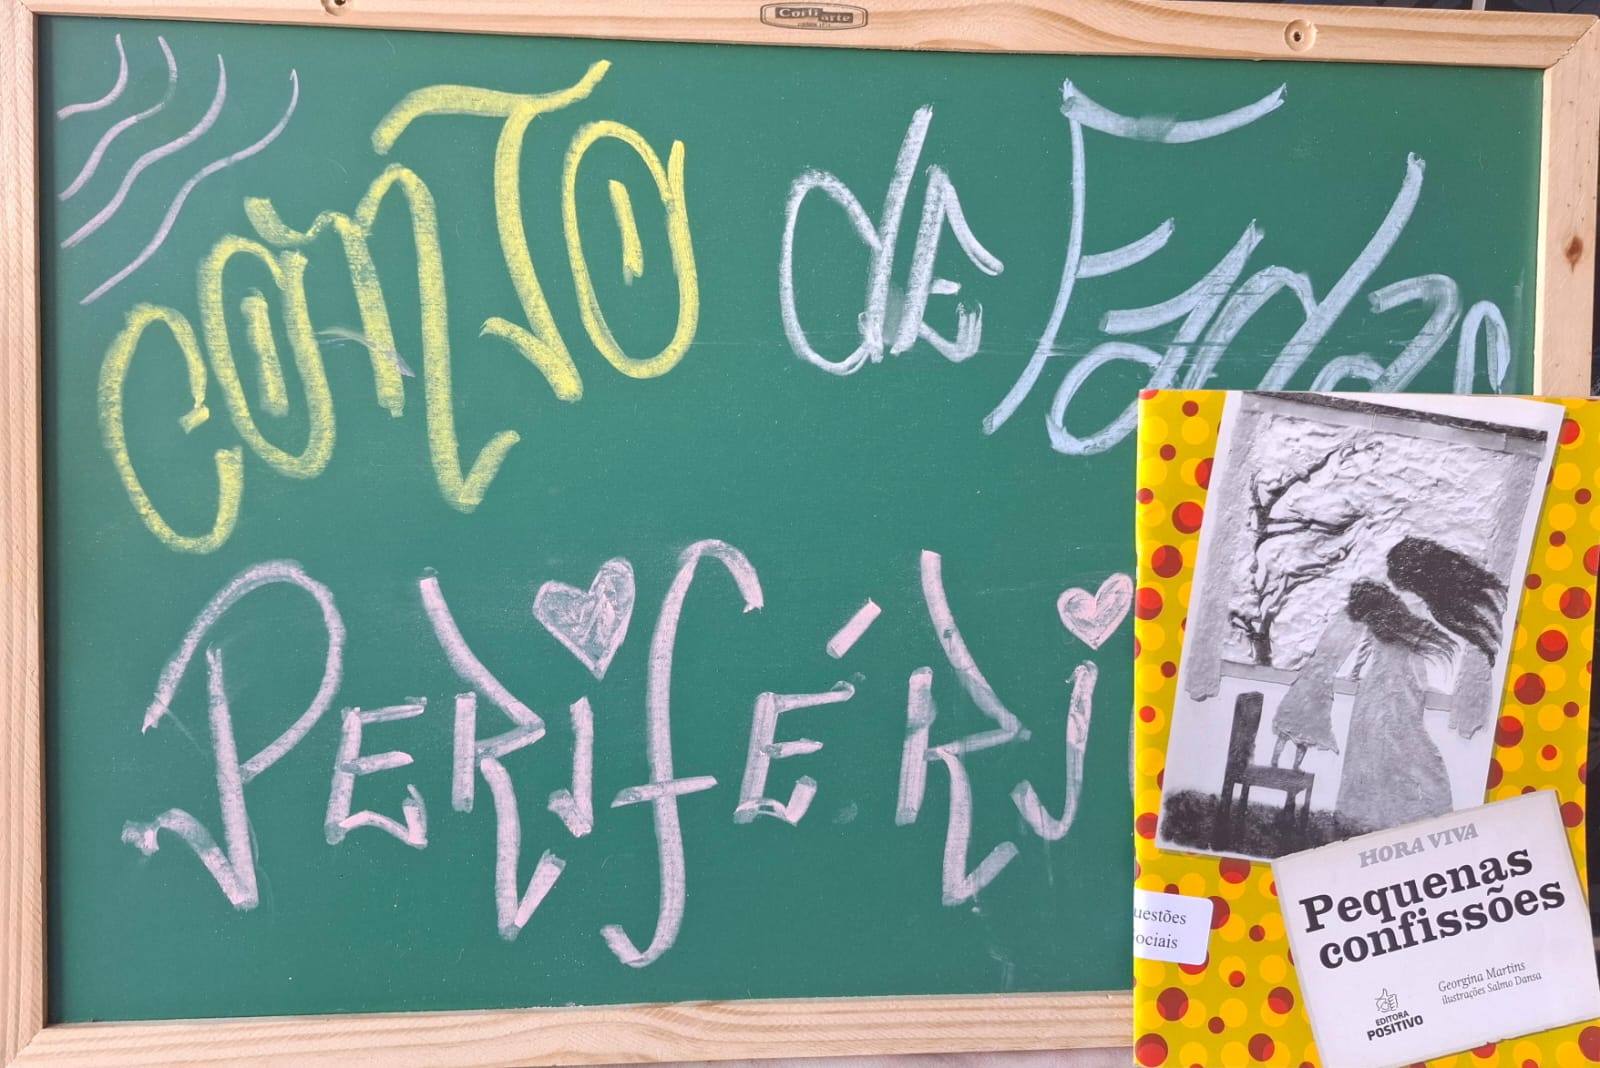 Corti arte
CONTO de Fadas
PERIFÉRI
HORA VIVA
Pequenas
confissões
Georgina Martins
ilustrações Salmo Dansa
EDITORA
POSITIVO
uestões
ociais